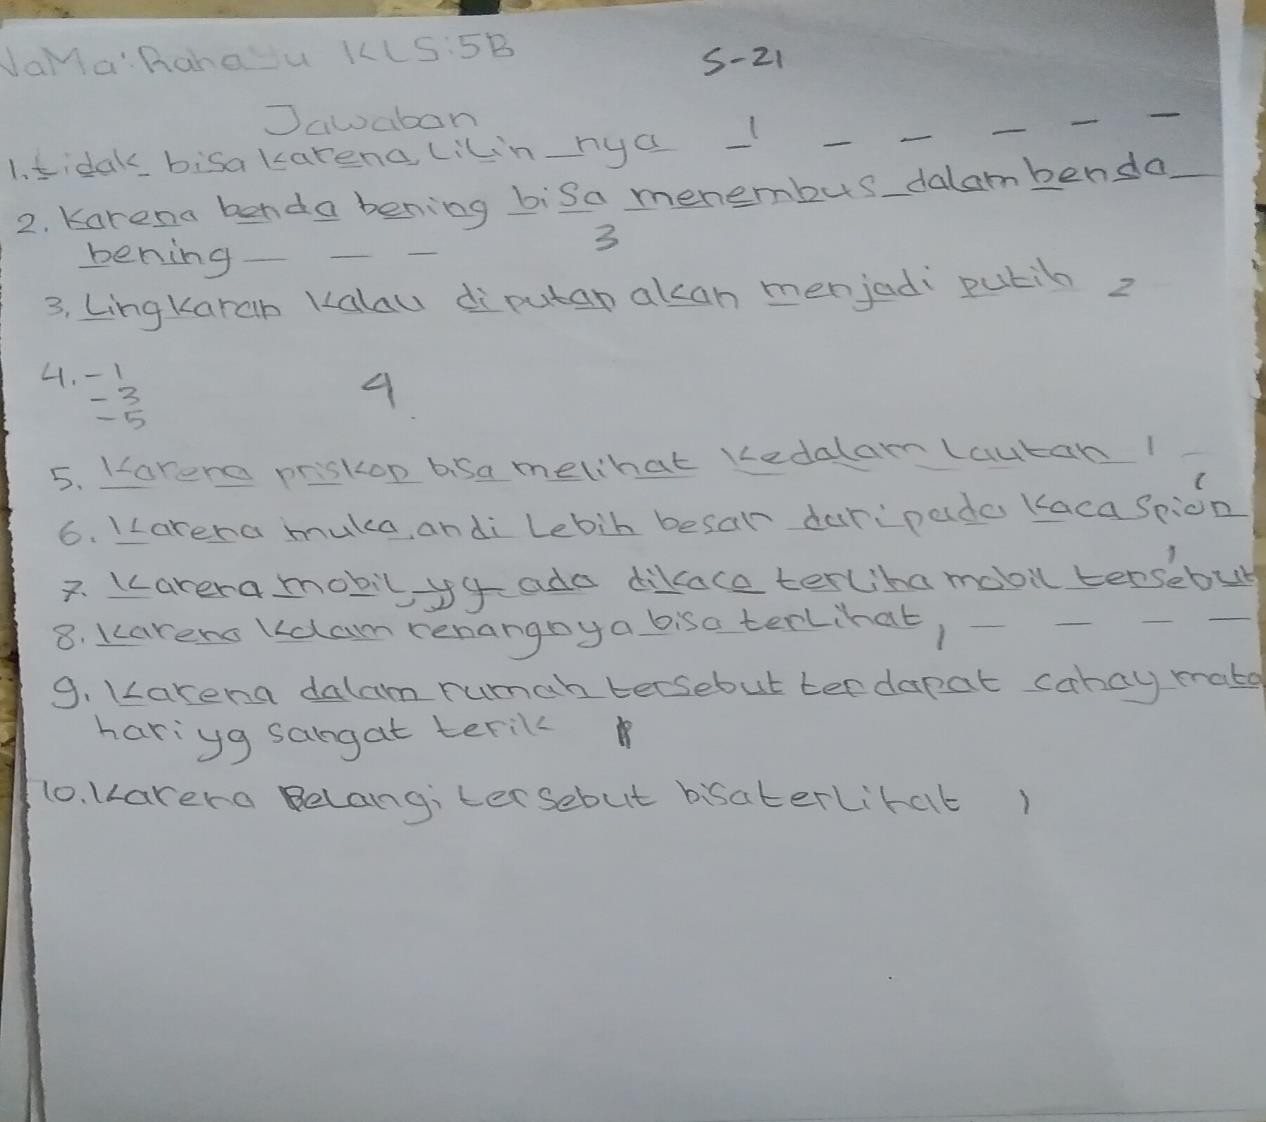 NaMa: Rahayu KLS:5B S-21
Jawaban
1. tidak bisa karena, Lilin_nya _ 1 _ _ _ _ _
2. Karena benda bening bisa menembus_dalam benda_
bening _ _ _ 3
3. Lingkaran Kalau diputar akan menjadi putih 2
4. - 1 4
- 3
- 5
5. Karena priskop bisa melihat Kedalam Lautan 1
6. Karena muka, andi Lebih besar daripada Kaca Spion 1
7. Karena mobil, yg ada dikaca terliha mobil tersebut 1
8. Karena Kolam renangnya bisa terLihat, 1 _ _ _ _
9. Karena dalam rumah tersebut terdapat cahay mata
hari yg sangat terik 1
10. Karena Pelangi tersebut bisa terLihat 1